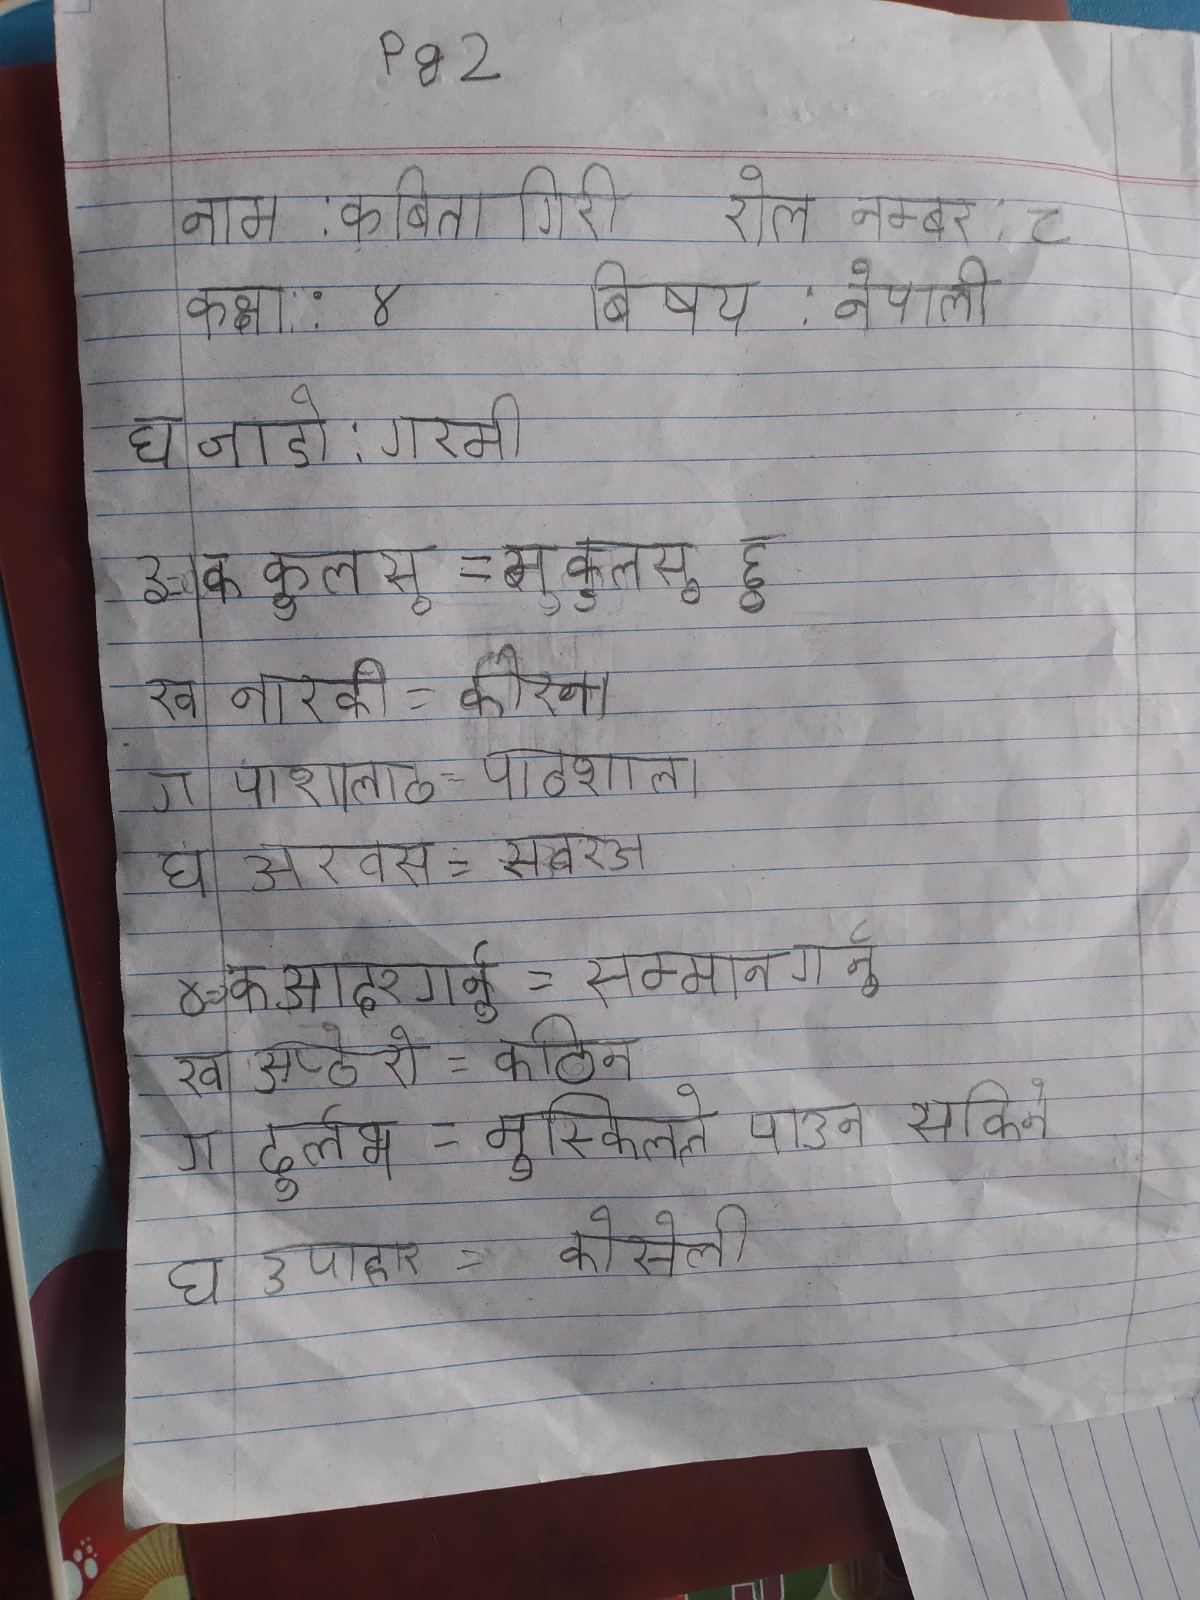 Pg 2
नाम : कबिता गिरी रोल नम्बर : ८
कक्षा : ४ बिषय : नेपाली
घ जाडो : गरमी
३⇒ क कुलसू = मुकुलसू हु
ख नारकी = कीरना
ग पाशालाठ = पाठशाला
घ अरवस = सबरअ
४⇒ क आदर गर्नु = सम्मान गर्नु
ख अप्ठेरो = कठिन
ग दुर्लभ = मुस्किलले पाउन सकिने
घ उपाहार = कोसेली